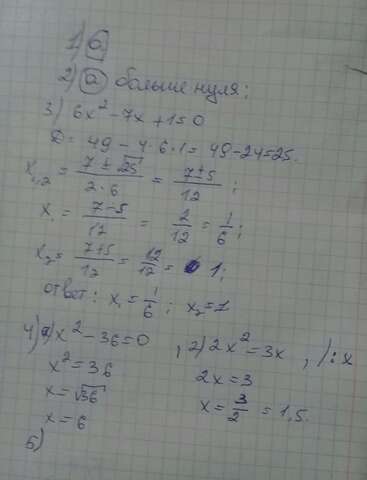 1) б
2) а больше нуля;
3) 6x² - 7x + 1 = 0
D = 49 - 4 · 6 · 1 = 49 - 24 = 25.
x₁,₂ = (7 ± √25)/(2 · 6) = (7 ± 5)/12 ;
x₁ = (7 - 5)/12 = 2/12 = 1/6 ;
x₂ = (7 + 5)/12 = 12/12 = 1;
ответ: x₁ = 1/6 ; x₂ = 1
4) 1) x² - 36 = 0 , 2) 2x² = 3x , /: x
x² = 36 2x = 3
x = √36 x = 3/2 = 1,5.
x = 6
5)